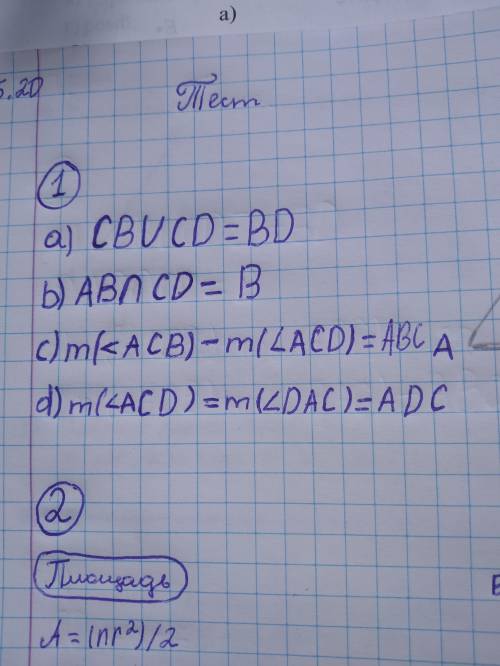 a)
5.20
Тест
1
a) CB∪CD=BD
b) AB∩CD=B
c) m(<ACB)-m(∠ACD)=ABC A
d) m(∠ACD)=m(∠DAC)=ADC
2
Площадь
A=(πr²)/2